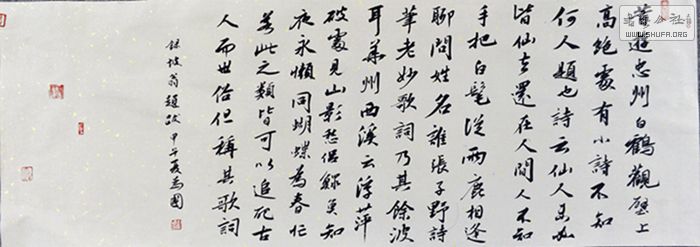 昔遊忠州白鶴觀壁上
高絶處有小詩不知
何人題也詩云仙人未必
皆仙去還在人間人不知
手把白髦從兩鹿相逢
聊問姓名誰張子野詩
筆老妙歌詞乃其餘波
耳華州西溪云浮萍
破處見山影愁侶鰥魚知
夜永懶同蝴蝶為春忙
若此之類皆可以追配古
人而世俗但稱其歌詞
録坡翁題跋甲午夏為國
WWW.SHUFA.ORG